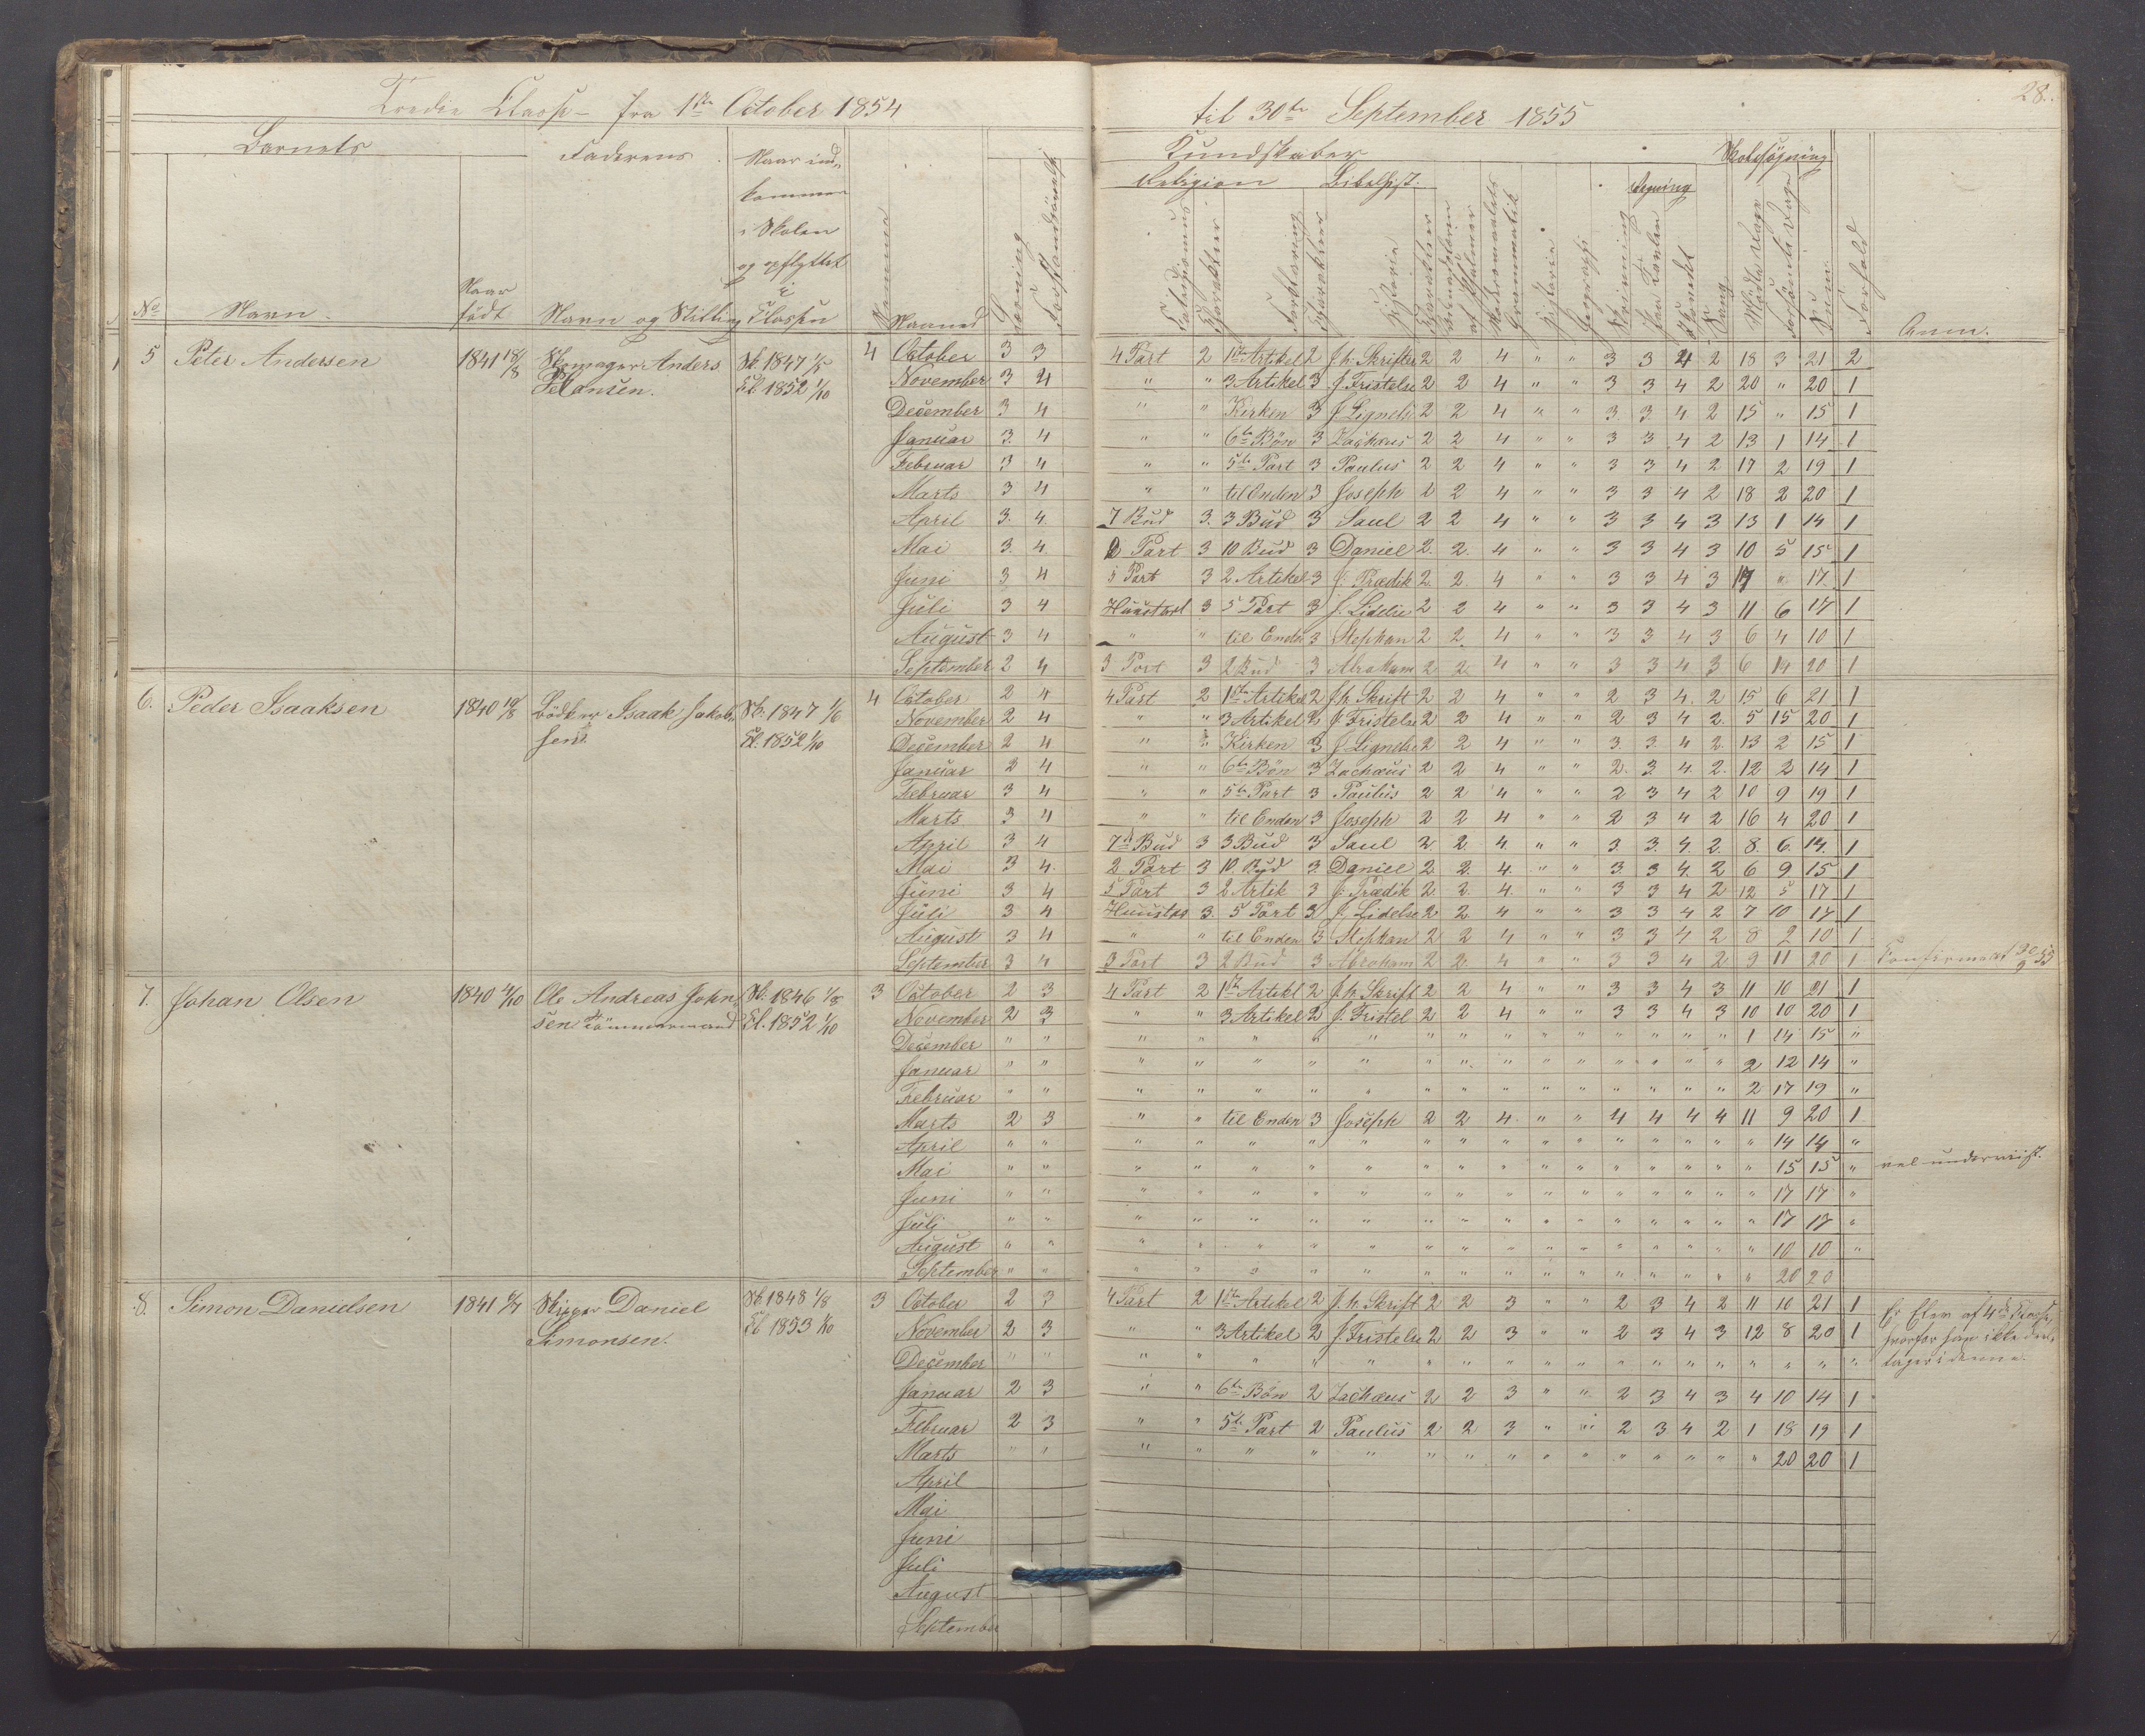 Tredie Classe fra 1ste October 1854
til 30te September 1855
28.
Barnets
Faderens
Naar ind-
kommen
i Skolen
og opflyttet
i
Classen
No
Navn
Naar
født
Navn og Stilling
Maaned
Kundskaber
Religion
Bibelhist.
Regning
Skolesøgning
Forklaring
Historie
Sang
Sum
Forhold
Anm.
5 Peter Andersen 1841 18/8 Anders Sk. 1847 1/5 4 October 3 3 4 Part 2 1ste Artikel 2 J. h. Skrifter 2 2 4 " " 3 3 4 2 18 3 21 2
Cl. 1852 1/10 November 3 4 " " 3 Artikel 3 J. Fristelse 2 2 4 " " 3 3 4 2 20 " 20 1
December 3 4 " " Kirken 3 J. Lignelse 2 2 4 " " 3 3 4 2 15 " 15 1
Januar 3 4 " " 6te Bøn 3 Zachæus 2 2 4 " " 3 3 4 2 13 1 14 1
Februar 3 4 " " 5te Part 3 Paulus 2 2 4 " " 3 3 4 2 17 2 19 1
Marts 3 4 " " til Enden 3 Joseph 2 2 4 " " 3 3 4 2 18 2 20 1
April 3. 4. 7 Bud 3. 3 Bud 3 Saul 2 2 4 " " 3 3 4 3 13 1 14 1
Mai 3. 4. 2 Part 3 10 Bud 3 Daniel 2. 2. 4 " " 3 3 4 3 10 5 15 1
Juni 3 4 5 Part 3 2 Artikel 3 J. Prædik 2. 2. 4 " " 3 3 4 3 17 " 17 1
Juli 3 4 Huustavl 3 5 Part 3 J. Lidelse 2 2 4 " " 3 3 4 3 11 6 17 1
August 3 4 " " til Enden 3 Stephan 2 2 4 " " 3 3 4 3 6 4 10 1
September 2 4 3 Part 3 2 Bud 3 Abraham 2 2 4 " " 3 3 4 3 6 14 20 1
6. Peder Isaaksen 1840 19/8 Bødker Isaak Jakob- Sk. 1847 1/6 4 October 2 4 4 Part 2 1ste Artikel 2 J. h. Skrift 2 2 4 " " 2 3 4. 2 15 6 21 1
sen. Cl. 1852 1/10 November 2 4 " " 3 Artikel 2 J. Fristelse 2 2 4 " " 2 3 4 2. 5 15 20 1
December 2 4 " " Kirken 3 J. Lignelse 2 2 4 " " 3. 3. 4 2. 13 2 15 1
Januar 2 4 " " 6te Bøn 3 Zachæus 2 2 4 " " 2. 3 4. 2. 12 2 14 1
Februar 3 4 " " 5te Part 3 Paulus 2 2 4 " " 2 3 4 2 10 9 19 1
Marts 3 4 " " til Enden 3 Joseph 2 2 4 " " 2 3 4 2 16 4 20 1
April 3 4 7de Bud 3 3 Bud 3 Saul 2 2. 4 " " 3. 3. 4. 2. 8. 6. 14. 1
Mai 3 4. 2 Part 3 10 Bud 3. Daniel 2. 2. 4. " " 3. 3 4. 2 6 9 15 1
Juni 3 4 5 Part 3 2 Artik 3 J. Prædik 2. 2. 4. " " 3 3 4 2 12 5 17 1
Juli 3 4 Huustav 3. 5 Part 3 J. Lidelse 2 2 4 " " 3 3 4 2 7 10 17 1
August 3 4 " " til Enden 3 Stephan 2 2 4 " " 3 3 4 2 8 2 10 1
September 3 4 3 Part 3 2 Bud 3 Abraham 2 2. 4 " " 3 3 4 2 9 11 20 1 Confirmeret 30/9 55
7. Johan Olsen 1840 4/10 Ole Andreas John- Sk. 1846 1/8 3 October 2 3 4 Part 2 1ste Artikl 2 J. h. Skrift 2 2 4 " " 3 3 4 3 11 10 21 1
sen Tømmermand Cl. 1852 1/10 November 2 3 " " 3 Artikel 2 J. Fristel 2 2 4 " " 3 3 4 3 10 10 20 1
December " " " " " " " " " " " " " " " " 1 14 15 "
Januar " " " " " " " " " " " " " " " " 2 12 14 "
Februar " " " " " " " " " " " " " " " " 2 17 19 "
Marts 2 3 " " til Enden 3 Joseph 2 2 4. " " 4 4 4 4 11 9 20 1
April " " " " " " " " " " " " " " " " " 14 14 "
Mai " " " " " " " " " " " " " " " " " 15 15 " vel underviist.
Juni " " " " " " " " " " " " " " " " " 17 17 "
Juli " " " " " " " " " " " " " " " " " 17 17 "
August " " " " " " " " " " " " " " " " " 10 10 "
September " " " " " " " " " " " " " " " " " 20 20
8. Simon Danielsen 1841 Skipper Daniel Sk. 1848 1/8 3 October 2 3 4 Part 2 1ste Artikel 2 J. h. Skrift 2 2 3 " " 2 3 4 2 11 10 21 1 Er Elev af 4de Classe,
Simonsen. Cl. 1853 1/10 November 2 3 " " 3 Artikel 2 J. Fristelse 2 2 3 " " 2 3 4 3 12 8 20 1 hvorfor han ikke del-
December " " " " " " " " " " " " " " " " " " " " tager i denne.
Januar 2 3 " " 6te Bøn 2 Zachæus 2 2 3 " " 2 3 4 3 4 10 14 1
Februar 2 3 " " 5te Part 2 Paulus 2 2 3 " " 2 3 4 2 1 18 19 1
Marts " " " " " " " " " " " " " " " " " 20 20 1
April
Mai
Juni
Juli
August
September